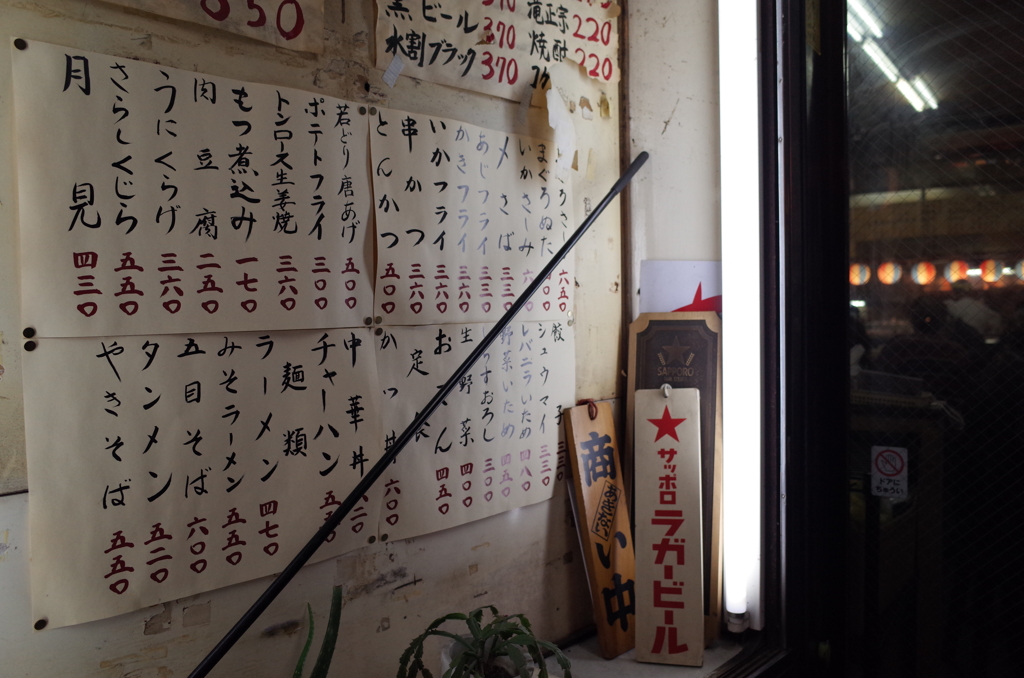 350
黒ビール 370
水割ブラック 370
滝正宗 220
焼酎 220
まぐろぬた
いかさしみ
〆さば 三三〇
あじフライ 三三〇
かきフライ 三六〇
いかフライ 三六〇
串かつ 三六〇
とんかつ 五〇〇
若どり唐あげ 五〇〇
ポテトフライ 三〇〇
トンロース生姜焼 三六〇
もつ煮込み 一七〇
肉豆腐 二五〇
うにくらげ 三六〇
さらしくじら 五五〇
月見 四三〇
餃子 三三〇
シュウマイ 三三〇
レバニラいため 四八〇
野菜いため 四五〇
生野菜 四〇〇
おでん 四五〇
定食
かつ丼 六〇〇
中華丼
チャーハン 五五〇
麺類
ラーメン 四七〇
みそラーメン 五五〇
五目そば 六〇〇
タンメン 五二〇
やきそば 五五〇
商い中
あきない
SAPPORO
サッポロラガービール